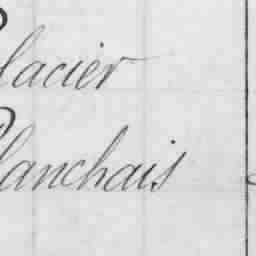 lacier
lanchais